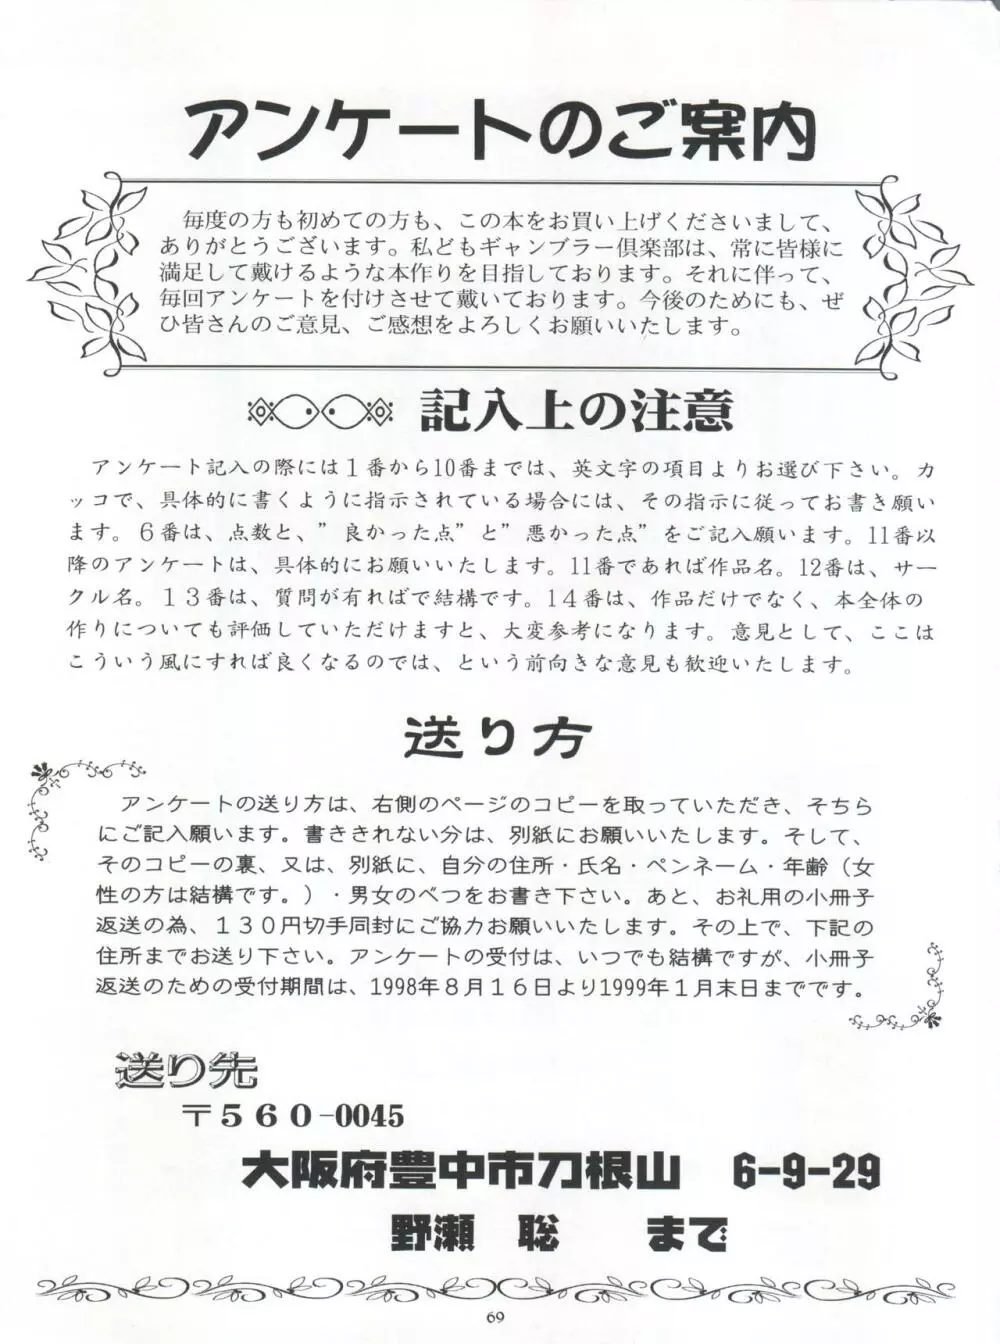 アンケートのご案内
毎度の方も初めての方も、この本をお買い上げくださいまして、
ありがとうございます。私どもギャンブラー倶楽部は、常に皆様に
満足して戴けるような本作りを目指しております。それに伴って、
毎回アンケートを付けさせて戴いております。今後のためにも、ぜ
ひ皆さんのご意見、ご感想をよろしくお願いいたします。
記入上の注意
アンケート記入の際には１番から10番までは、英文字の項目よりお選び下さい。カ
ッコで、具体的に書くように指示されている場合には、その指示に従ってお書き願い
ます。６番は、点数と、”良かった点”と”悪かった点”をご記入願います。11番以
降のアンケートは、具体的にお願いいたします。11番であれば作品名。12番は、サー
クル名。１３番は、質問が有ればで結構です。１４番は、作品だけでなく、本全体の
作りについても評価していただけますと、大変参考になります。意見として、ここは
こういう風にすれば良くなるのでは、という前向きな意見も歓迎いたします。
送り方
アンケートの送り方は、右側のページのコピーを取っていただき、そちら
にご記入願います。書ききれない分は、別紙にお願いいたします。そして、
そのコピーの裏、又は、別紙に、自分の住所・氏名・ペンネーム・年齢（女
性の方は結構です。）・男女のべつをお書き下さい。あと、お礼用の小冊子
返送の為、１３０円切手同封にご協力お願いいたします。その上で、下記の
住所までお送り下さい。アンケートの受付は、いつでも結構ですが、小冊子
返送のための受付期間は、1998年８月１６日より1999年１月末日までです。
送り先
〒５６０-0045
大阪府豊中市刀根山　6-9-29
野瀬　聡　まで
69